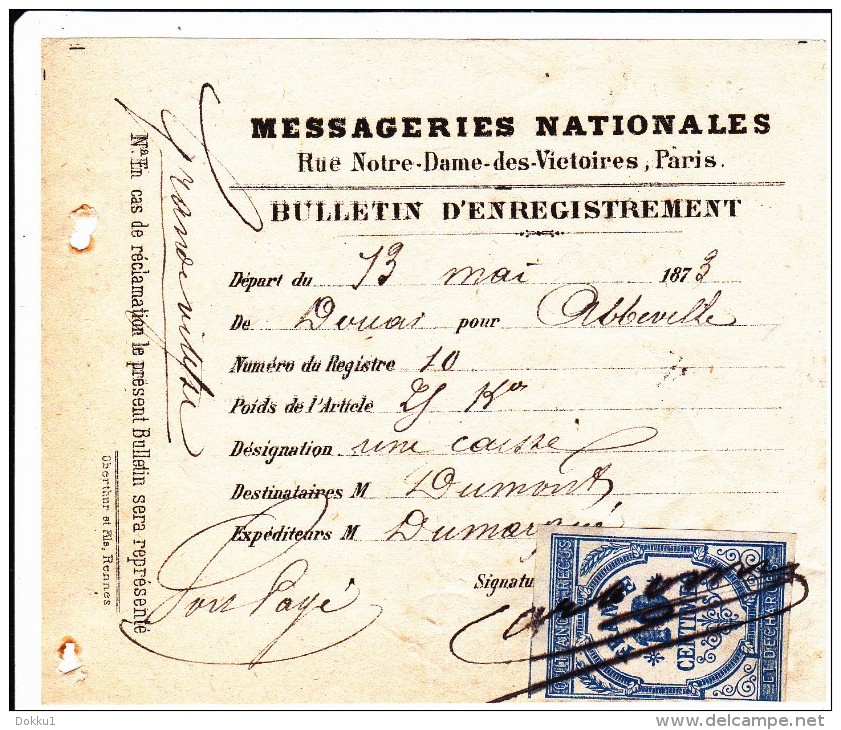 MESSAGERIES NATIONALES
Rue Notre-Dame-des-Victoires, Paris.
BULLETIN D'ENREGISTREMENT
Départ du 13 mai 1873
De Douai pour Abbeville
Numéro du Registre 10
Poids de l'Article 25 Kos
Désignation une caisse
Destinataires M Dumont
Expéditeurs M
Signatu
Port Payé
Grande vitesse
Na. En cas de réclamation le présent Bulletin sera représenté
Oberthur et fils, Rennes
QUITTANCES REÇUS
FRANCE
10
CENTIMES
ET DECHARGES
Dokku1
delcampe.net